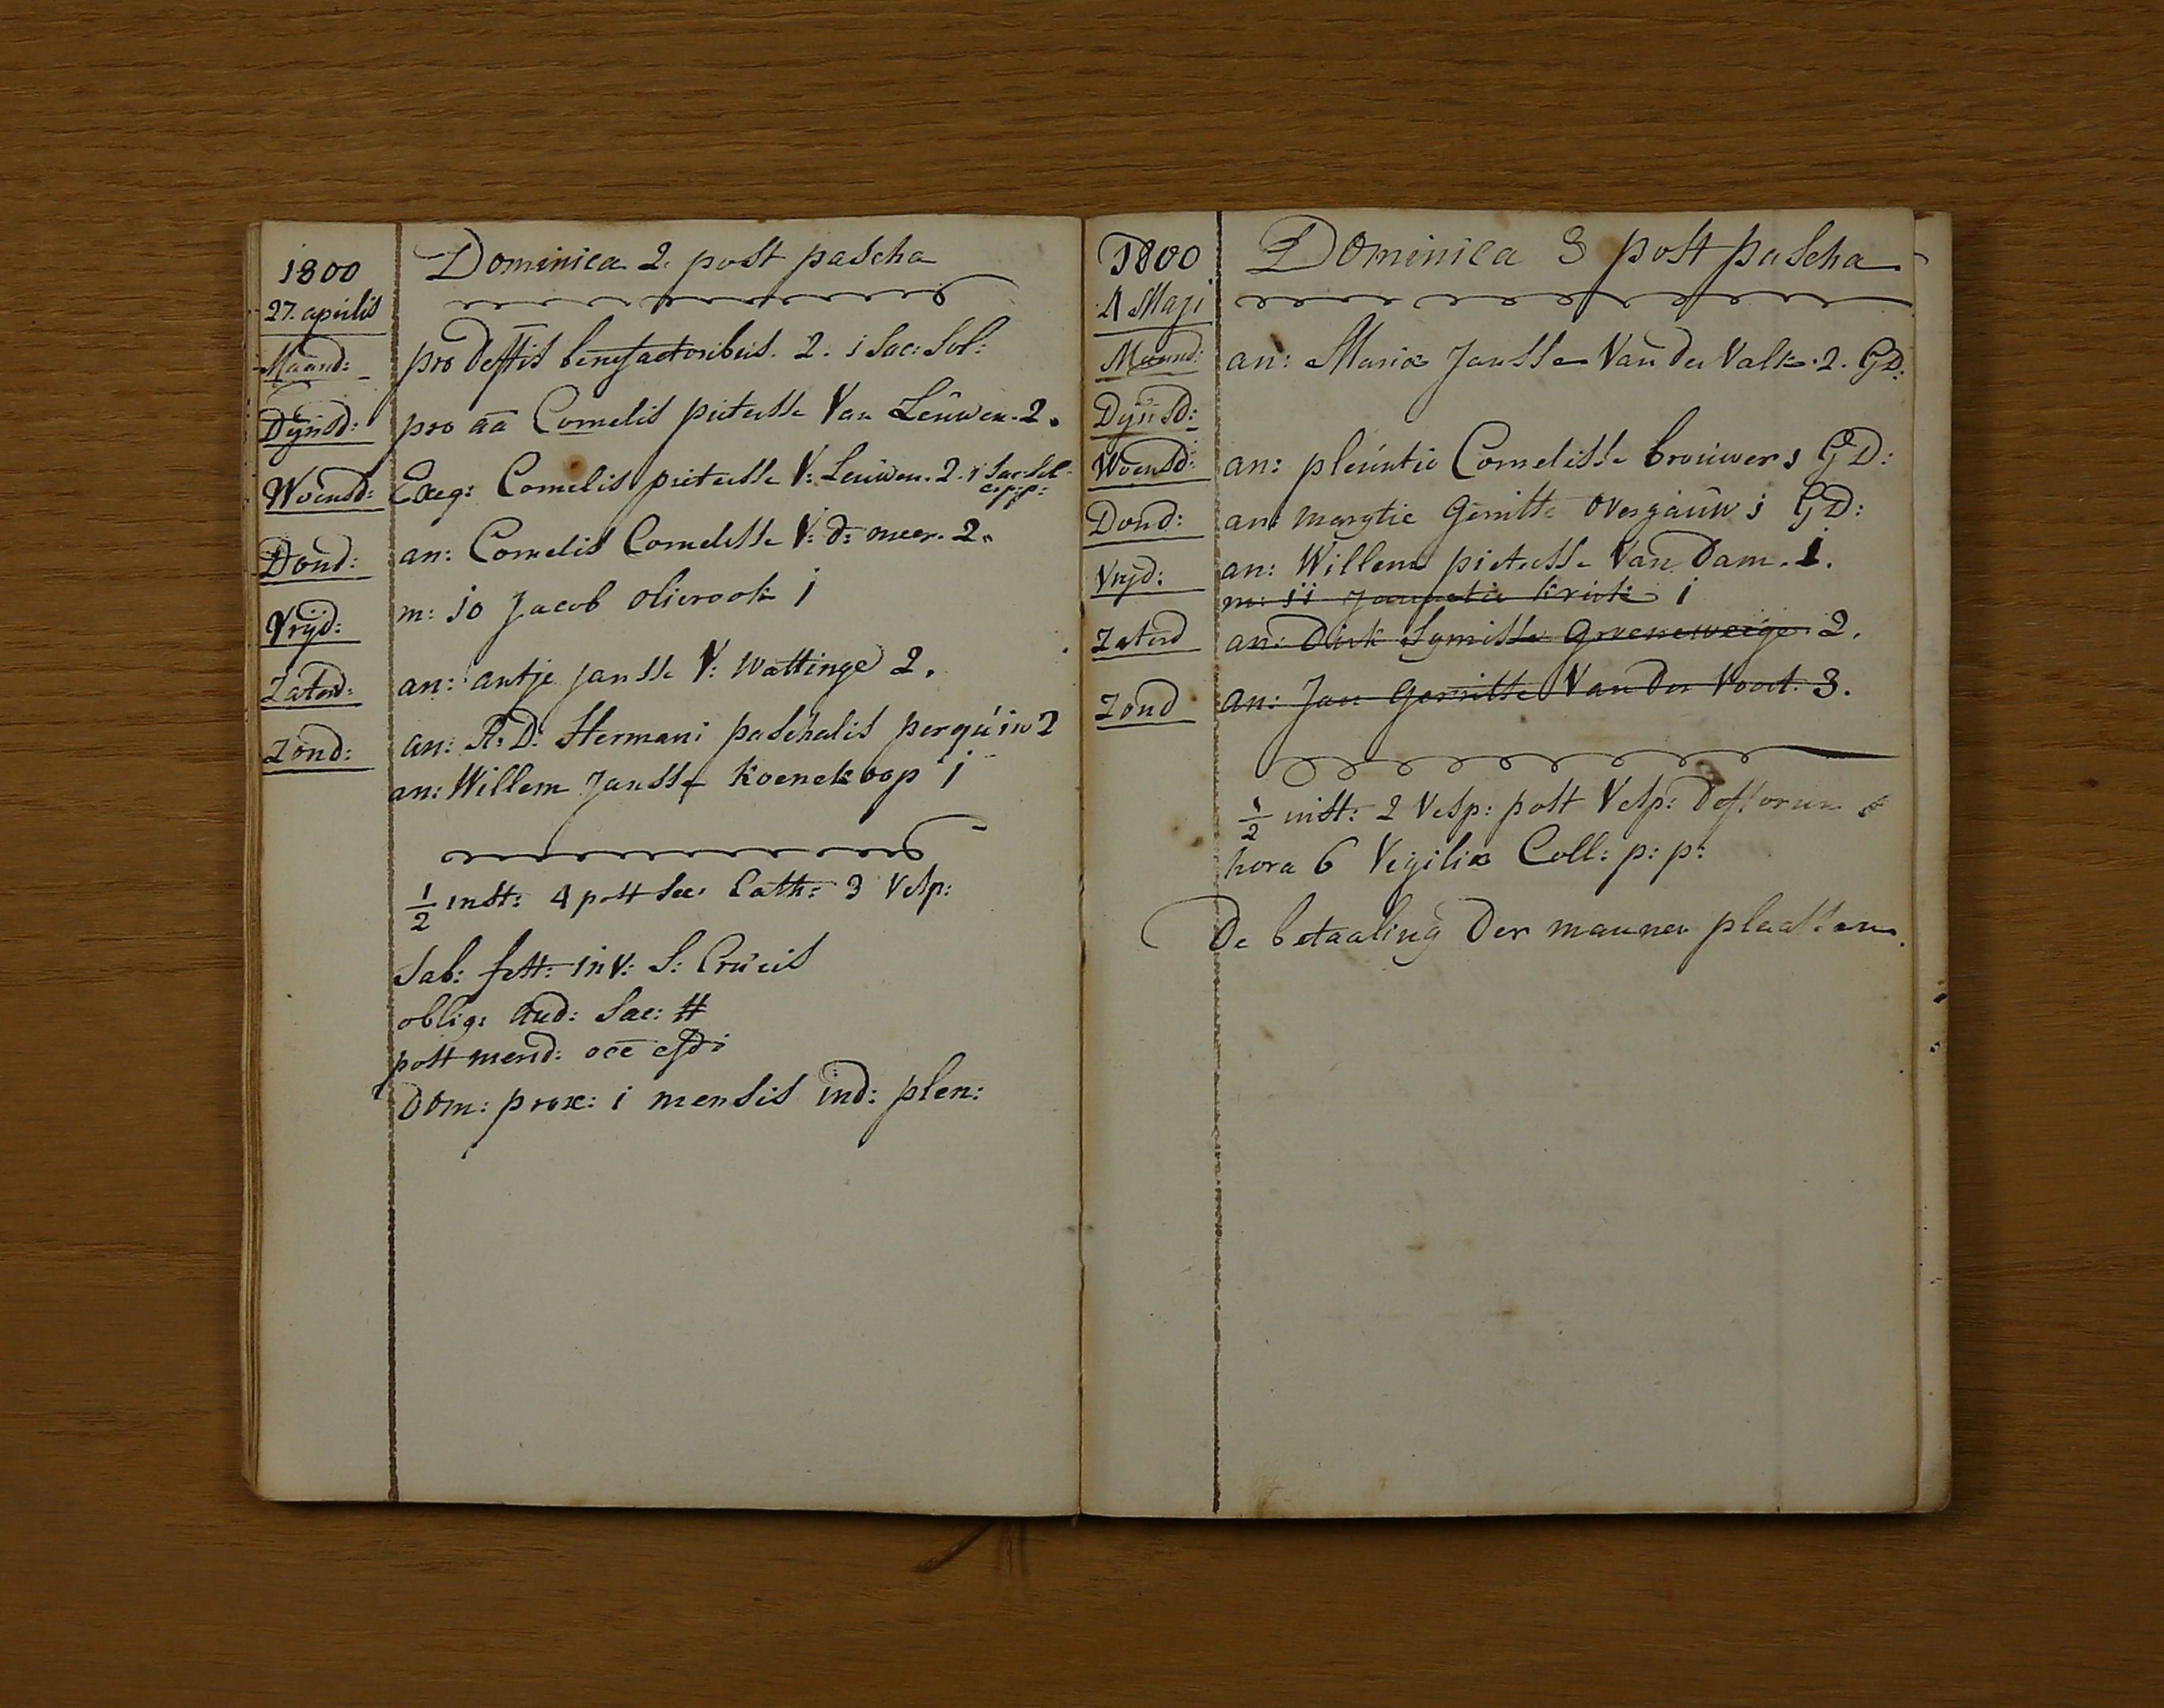 1800
27. aprilis
Dominica 2. post pascha
Maand: pro deftis benefactoribus. 2. i Sac: Sol:
Dÿnsd: pro aa Cornelis pietersse Van Leuwen. 2.
Woensd: Exeq: Cornelis pietersse V: Leuwen. 2. i Sac: Sol:
c: p: p:
Dond: an: Cornelis Cornelisse V: d: meer. 2.
Vrÿd: m: io Jacob olierook i
Zaterd: an: antje Jansse V: Wattinge 2.
Zond: an: R: D: Hermani paschalis perquin 2
an: Willem Jansse Koenekoop i
1/2 inst: 4 post sec. Cath: 3 Vesp:
Sab: fest: inv: S: Crucis
oblig: aud: Sac: #
post merid: oce
Dom: prox: i mensis ind: plen:
1800
4 Maji
Dominica 3 post pascha
Maand: an: Maria Jansse Van der Valk. 2. GD:
Dÿnsd:
Woensd: an: pleuntie Cornelisse brouwer i GD:
Dond: an: marytie Gerritse overgauw i GD:
Vryd: an: Willem pietersse Van Dam. i.
m: ii Jannetie krook i
Zaterd an: Dirk Symisse Groeneweige. 2.
Zond an: Jan Gerritse Van der Voort. 3.
1/2 inst: 2 Vesp: post Vesp: deftorum
hora 6 Vigiliæ Coll: p: p:
De betaaling der mannen plaatsen.